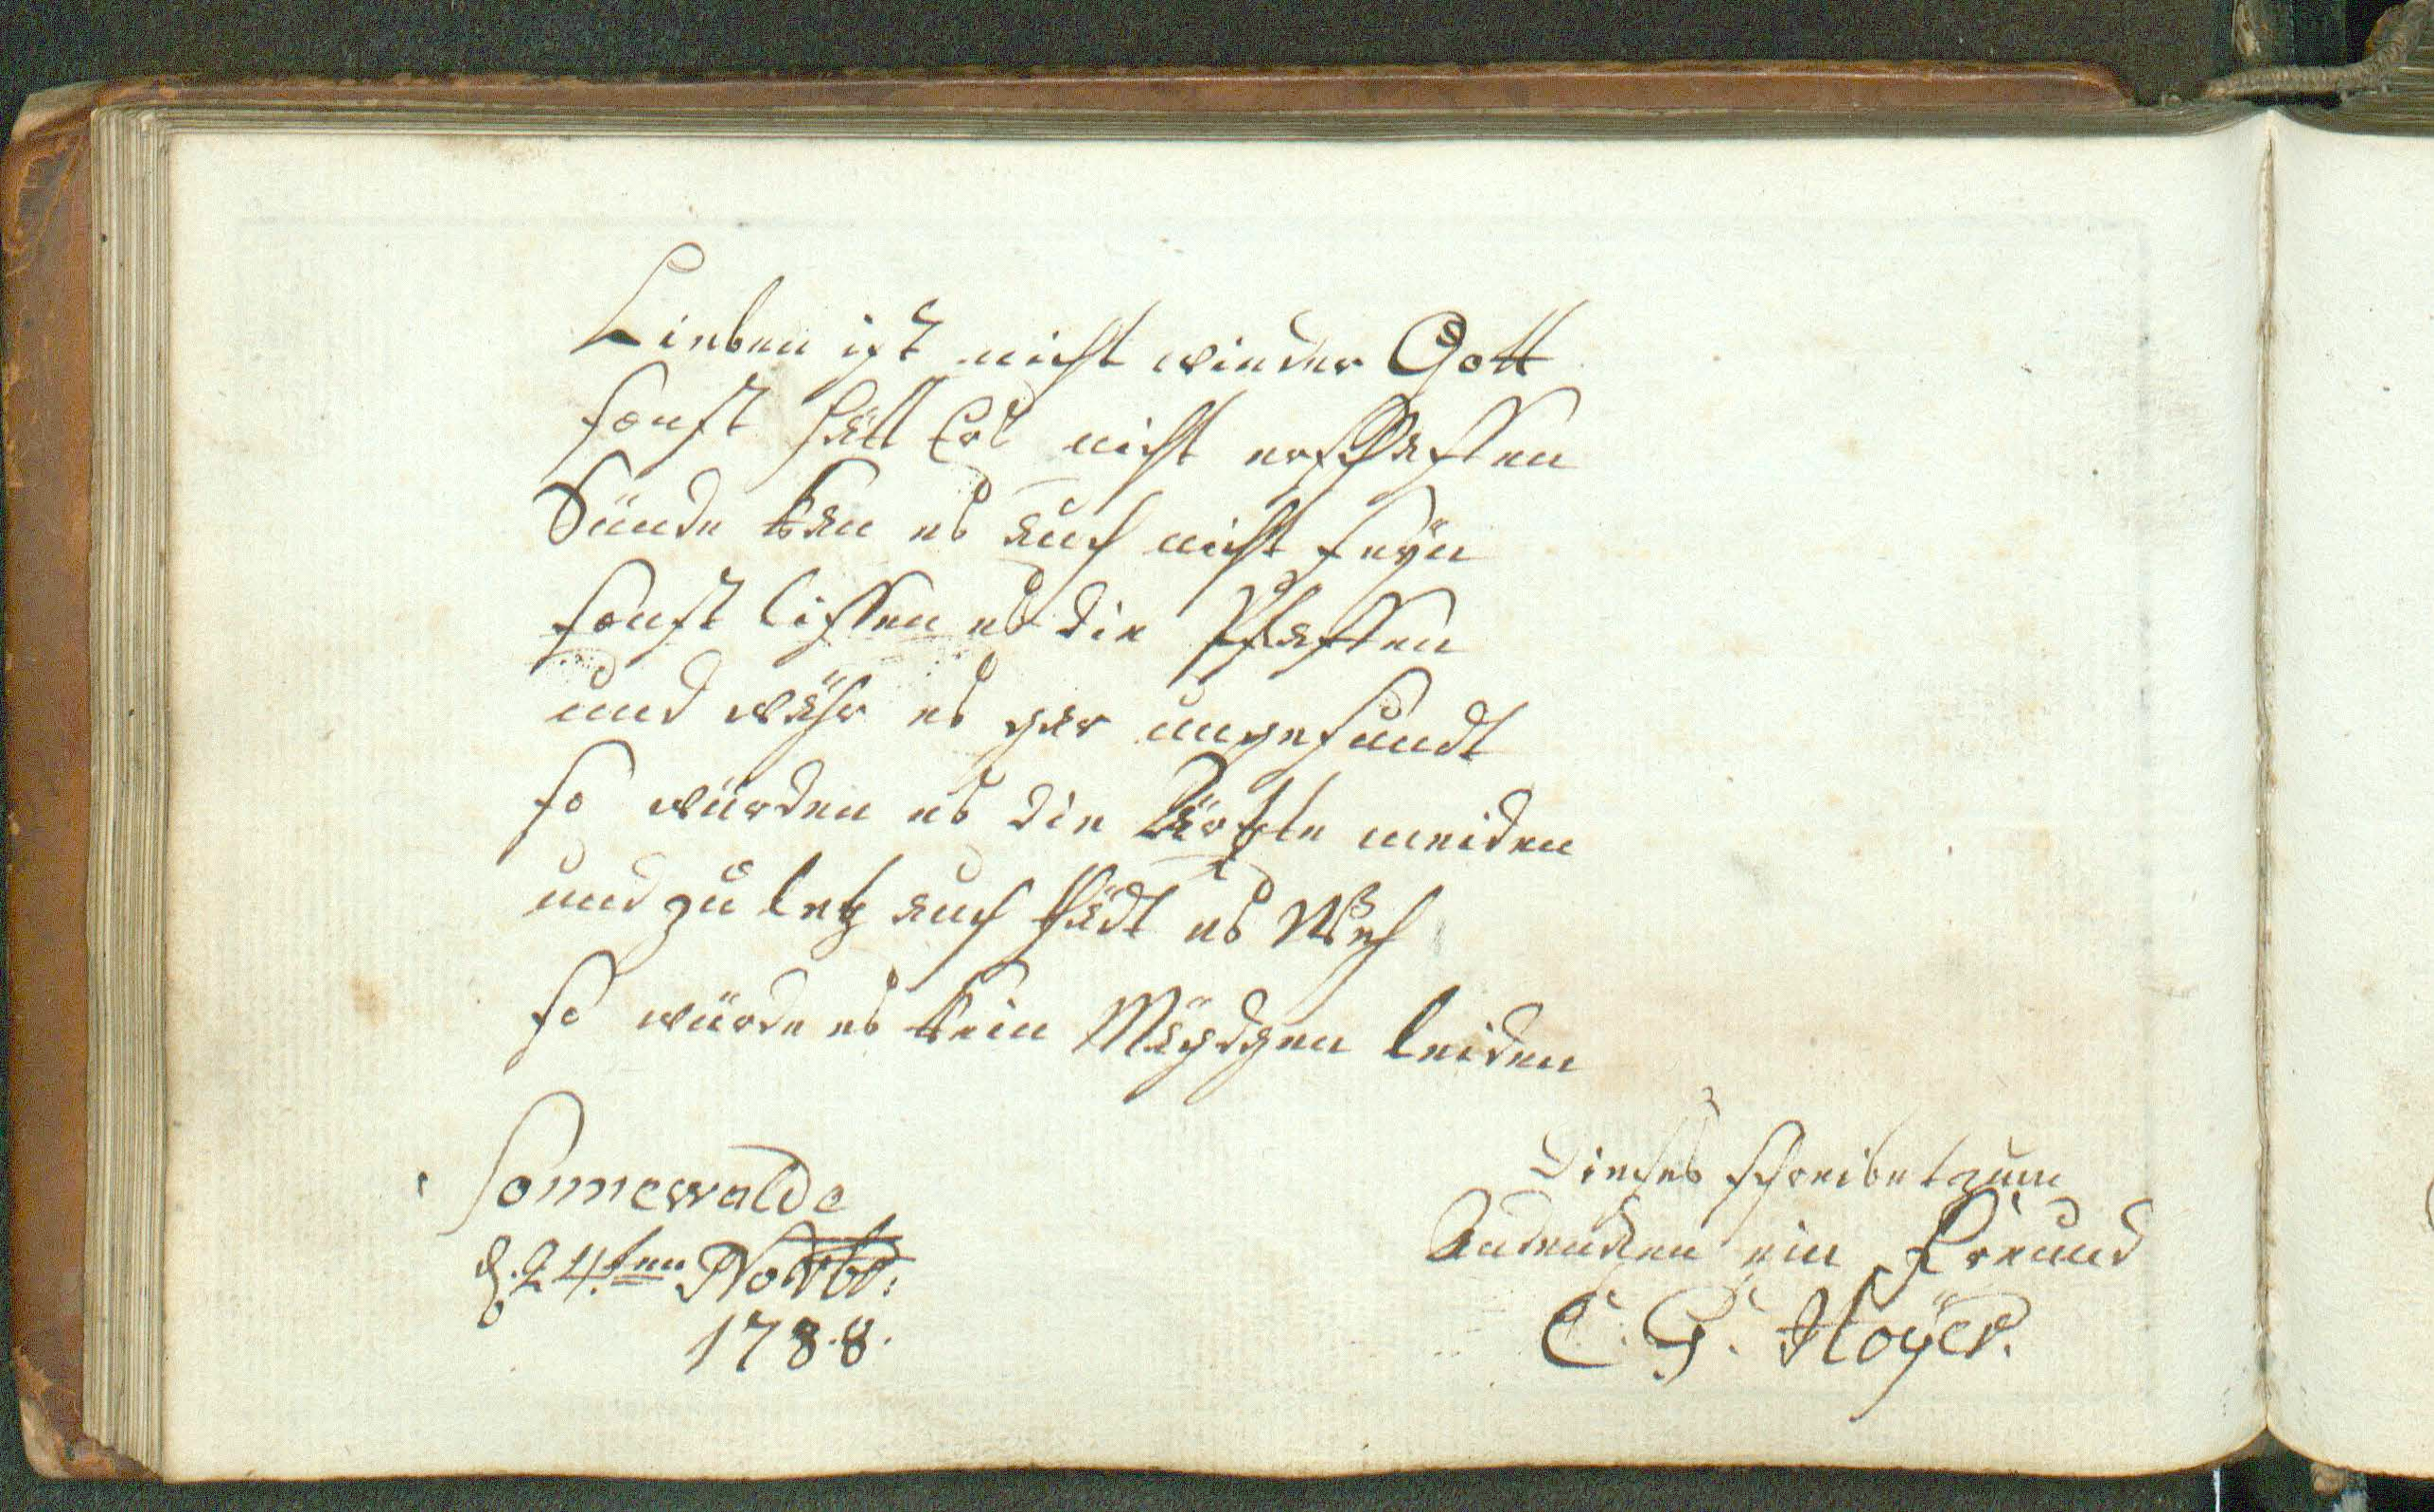 Lieben ist nicht wieder Gott
sonst hätt Ers nicht erschaffen
Sünde kan es auch nicht seÿn
sonst lissen es die Pfaffen
und währ es gar ungesundt
so würden es die Ärtzte meiden
und zu letz auch thädt es Weh
so würde es kein Mägdgen leiden
Sonnewalde
d. 24ten Novbr:
1788.
Dieses schreibet zum
Andencken ein Freund
C. G. Hoÿer.